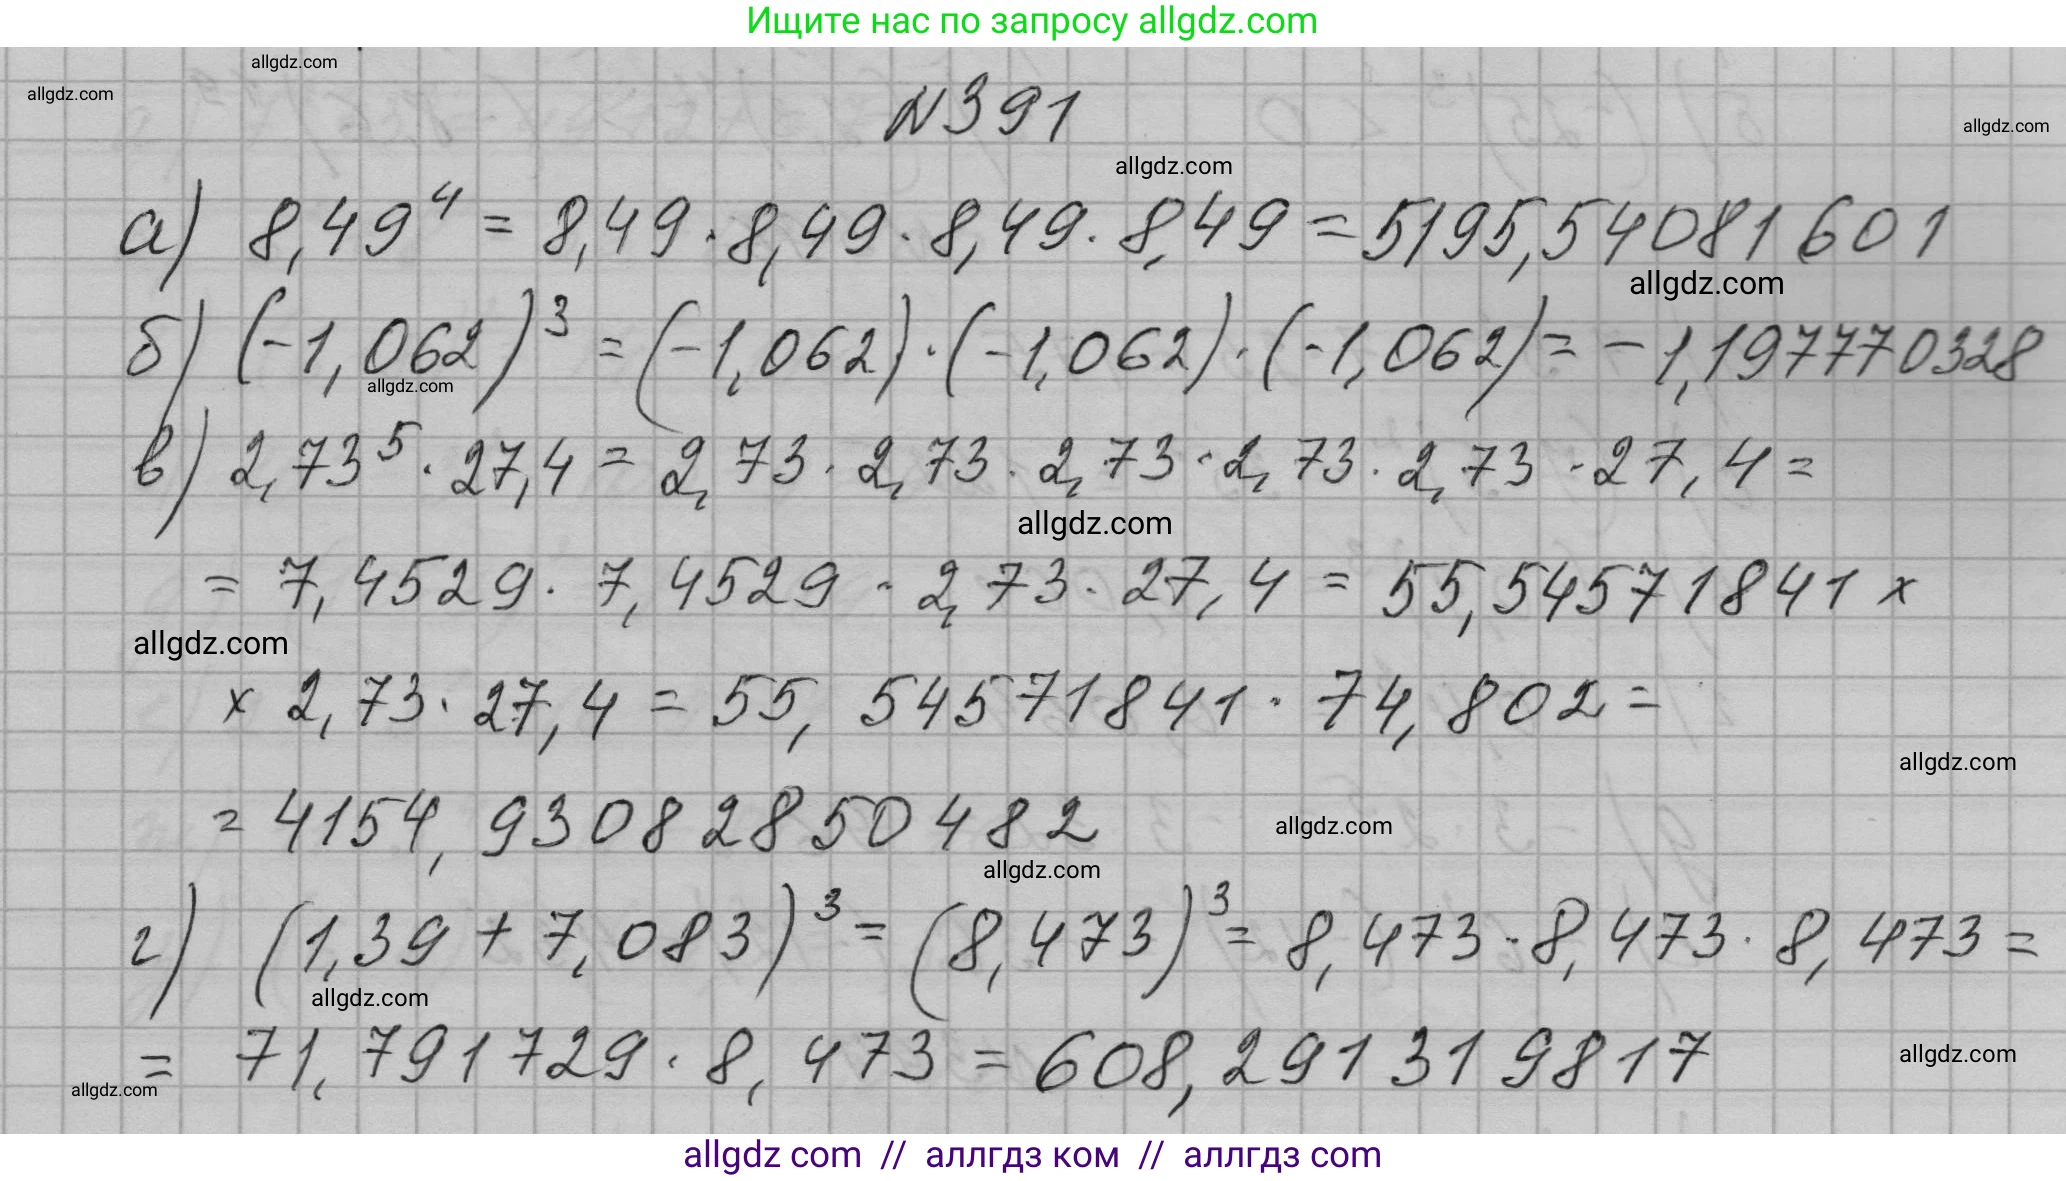 Ищите нас по запросу allgdz.com
allgdz.com
allgdz.com
№391
allgdz.com
allgdz.com
а) 8,49⁴ = 8,49 · 8,49 · 8,49 · 8,49 = 5195,54081601
allgdz.com
б) (-1,062)³ = (-1,062) · (-1,062) · (-1,062) = -1,197770328
allgdz.com
в) 2,73⁵ · 27,4 = 2,73 · 2,73 · 2,73 · 2,73 · 2,73 · 27,4 =
allgdz.com
= 7,4529 · 7,4529 · 2,73 · 27,4 = 55,54571841 ×
allgdz.com
× 2,73 · 27,4 = 55,54571841 · 74,802 =
allgdz.com
= 4154,93082850482
allgdz.com
allgdz.com
г) (1,39 + 7,083)³ = (8,473)³ = 8,473 · 8,473 · 8,473 =
allgdz.com
= 71,791729 · 8,473 = 608,291319817
allgdz.com
allgdz.com
allgdz com // аллгдз ком // аллгдз com